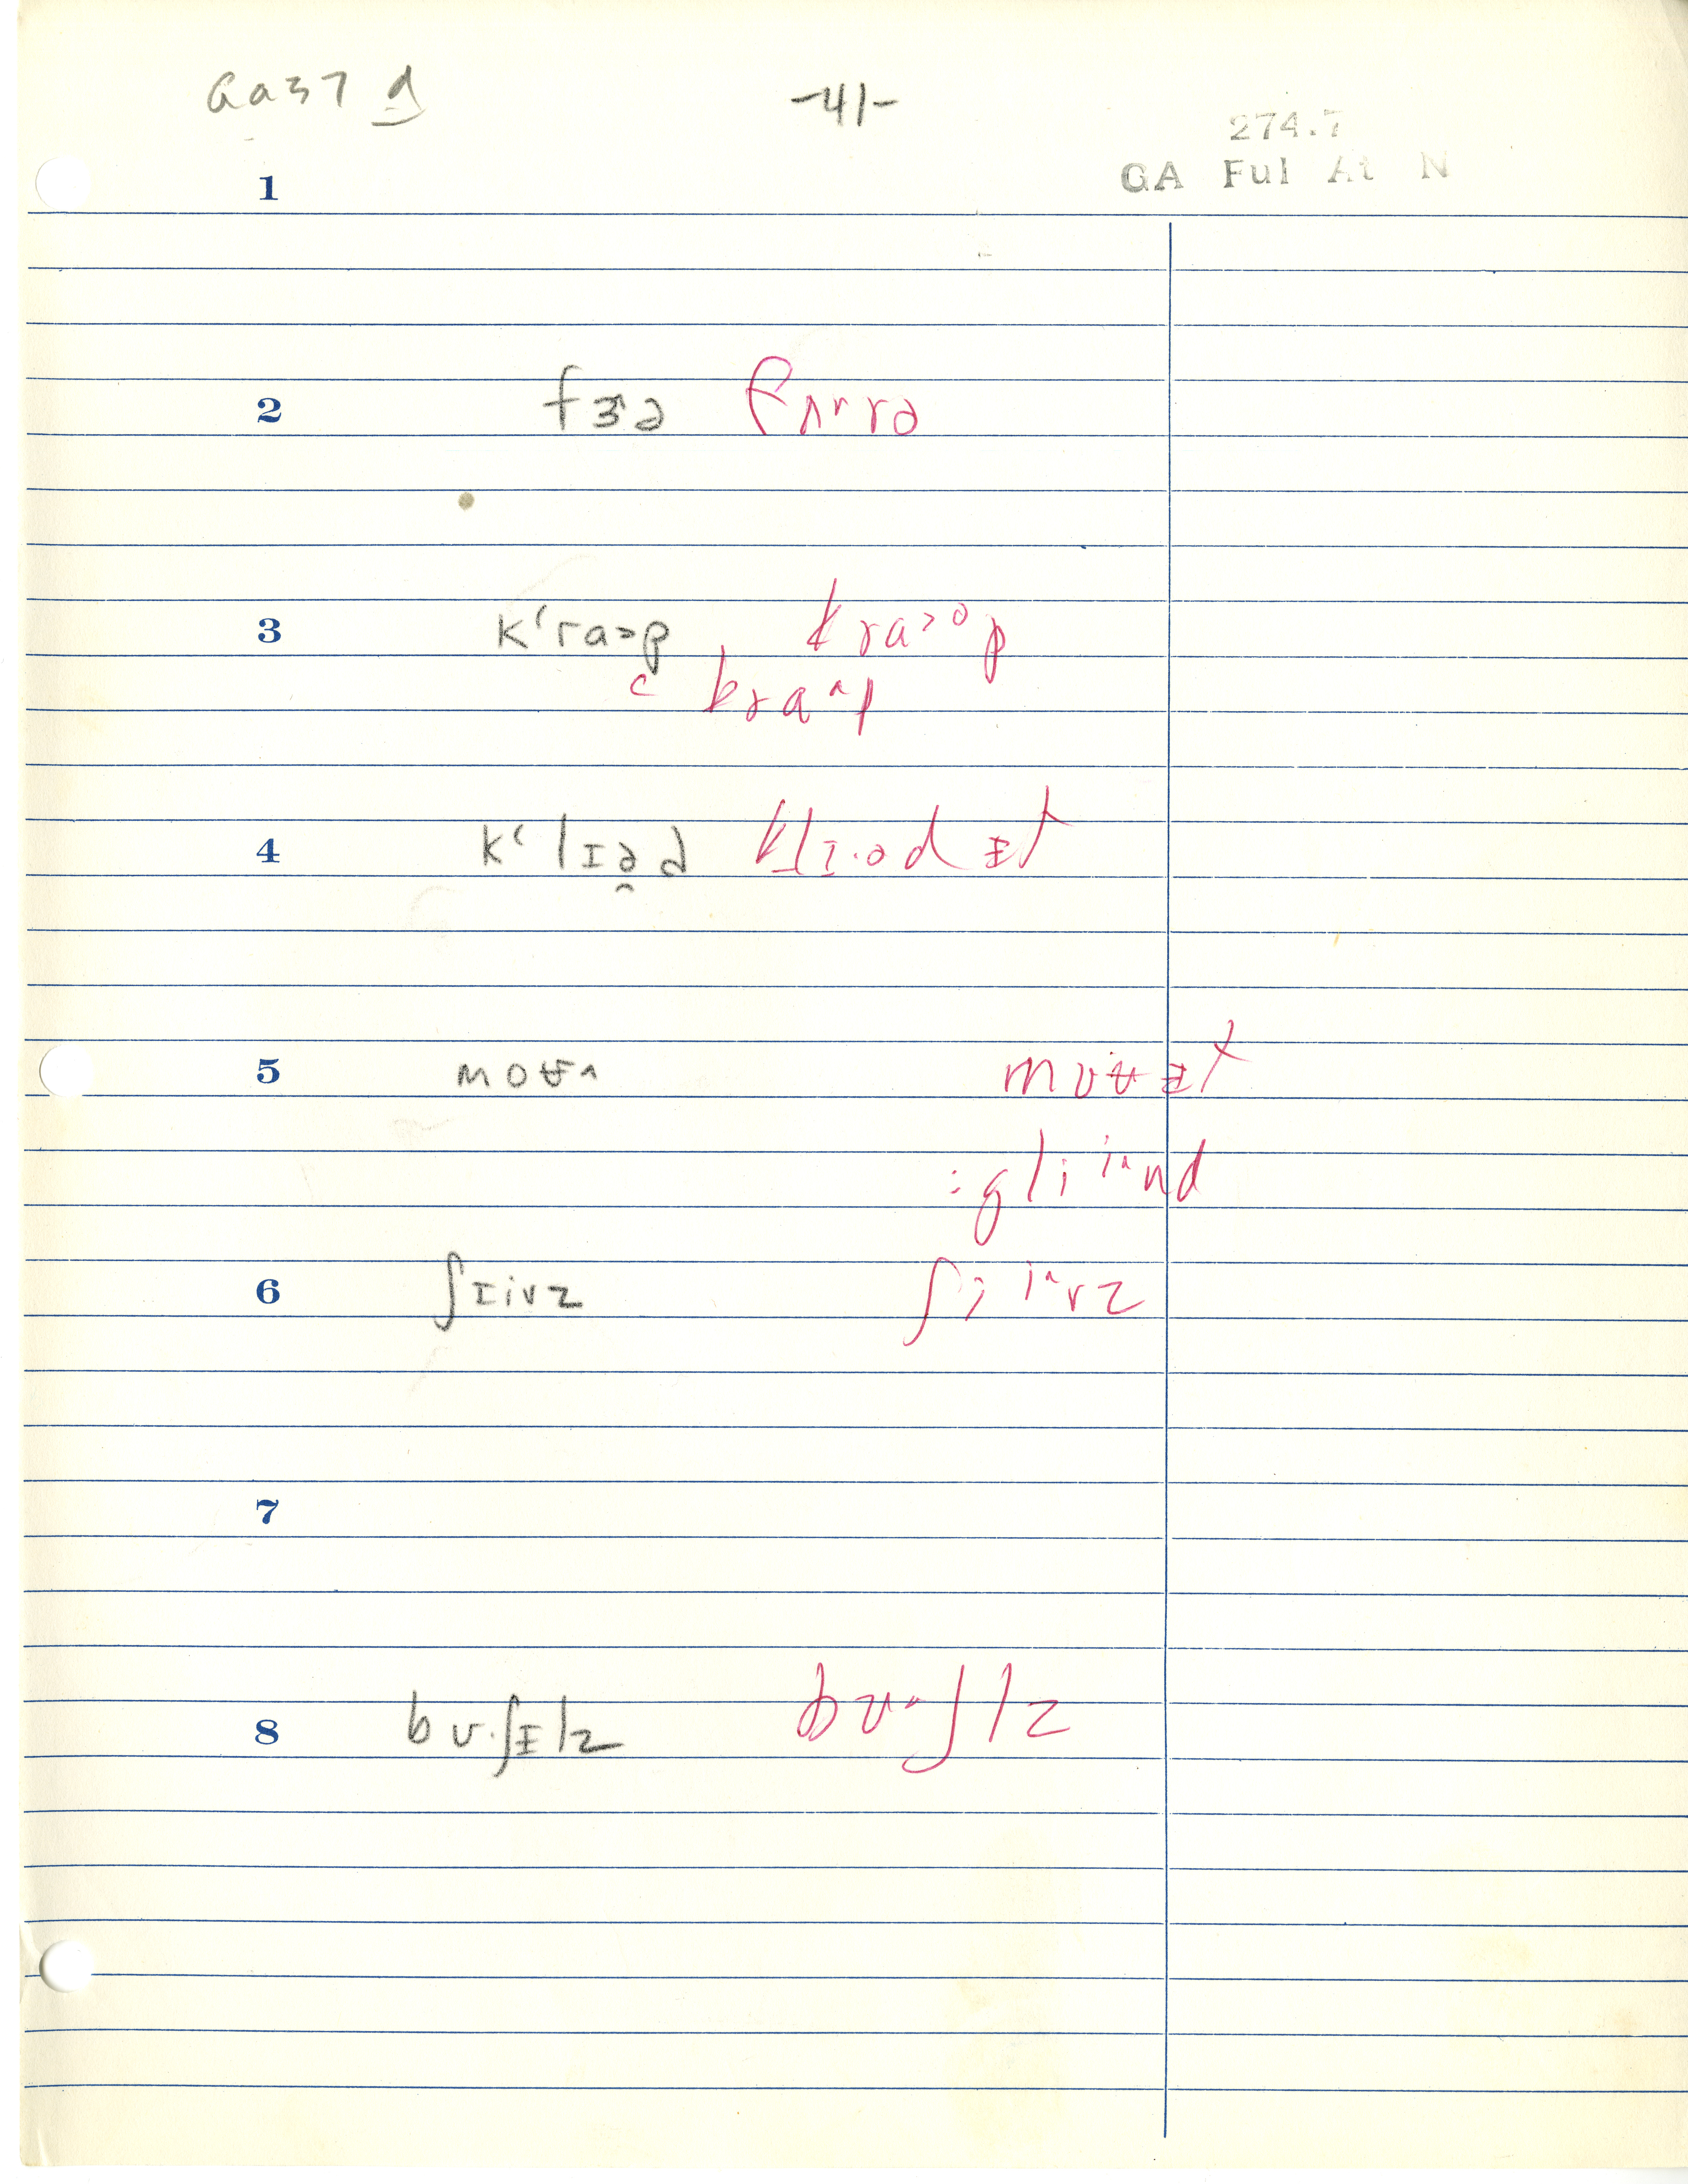 Ga37 d -41-
274.7
GA Ful At N
1
2 fɝə fʌrrə
3 kʻraɔp kraɔop
c kraʌp
4 kʻlɪəd klɪ·ədɨt
5 moʉʌ moʉɨt
:gliiʌnd
6 ʃɪivz ʃiiʌvz
7
8 bʊ·ʃɪlz bʊʌʃlz